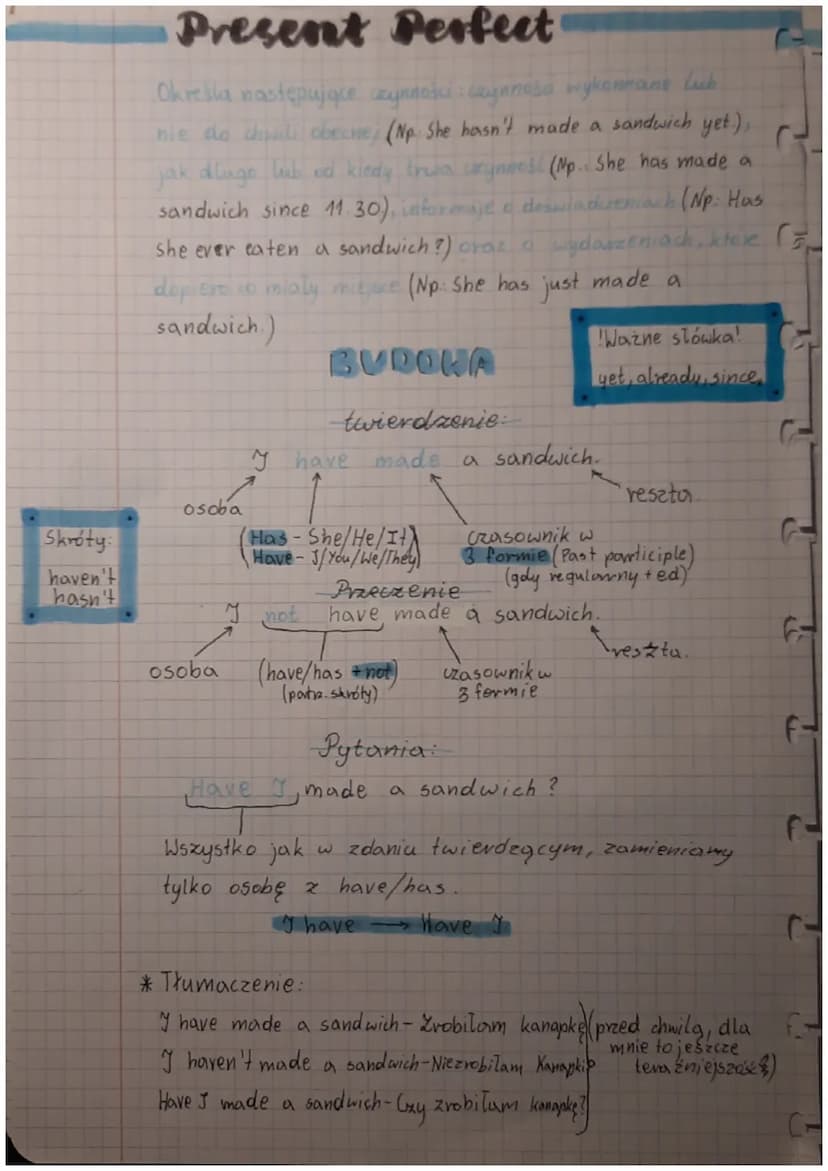 Present Perfect
Określa następujące czynności: czynności wykonane lub
nie do chwili obecnej (Np. She hasn't made a sandwich yet.),
jak długo lub od kiedy trwa czynność (Np. She has made a
sandwich since 11.30), informuje o doświadczeniach (Np: Has
she ever eaten a sandwich?) oraz o wydarzeniach, które
dopiero co miały miejsce (Np. She has just made a
sandwich.)
!Ważne słówka!
yet, already, since,
BUDOWA
twierdzenie:
I have made a sandwich.
osoba
reszta
(Has - She/He/It)
Have - I/You/We/They)
czasownik w
3 formie (Past participle)
(gdy regularny + ed)
Skróty:
haven't
hasn't
Przeczenie
I not have made a sandwich.
osoba
(have/has + not)
(patrz. skróty)
czasownik w
3 formie
reszta.
Pytania:
Have I made a sandwich?
Wszystko jak w zdaniu twierdzącym, zamieniamy
tylko osobę z have/has.
I have → Have I
* Tłumaczenie:
I have made a sandwich - Zrobiłam kanapkę (przed chwilą, dla
mnie to jeszcze
teraźniejszość)
I haven't made a sandwich - Nie zrobiłam Kanapki
Have I made a sandwich - Czy zrobiłam kanapkę?